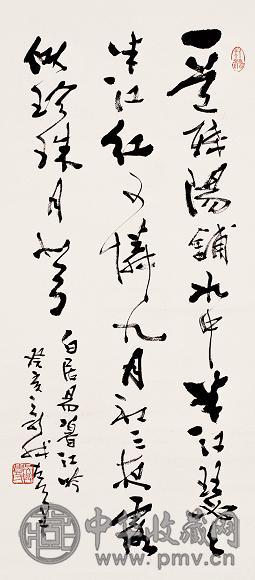 一道殘陽鋪水中半江瑟々
半江紅可憐九月初三夜露
似珍珠月似弓
白居易暮江吟
癸亥之秋
中华收藏网
www.pmv.cn